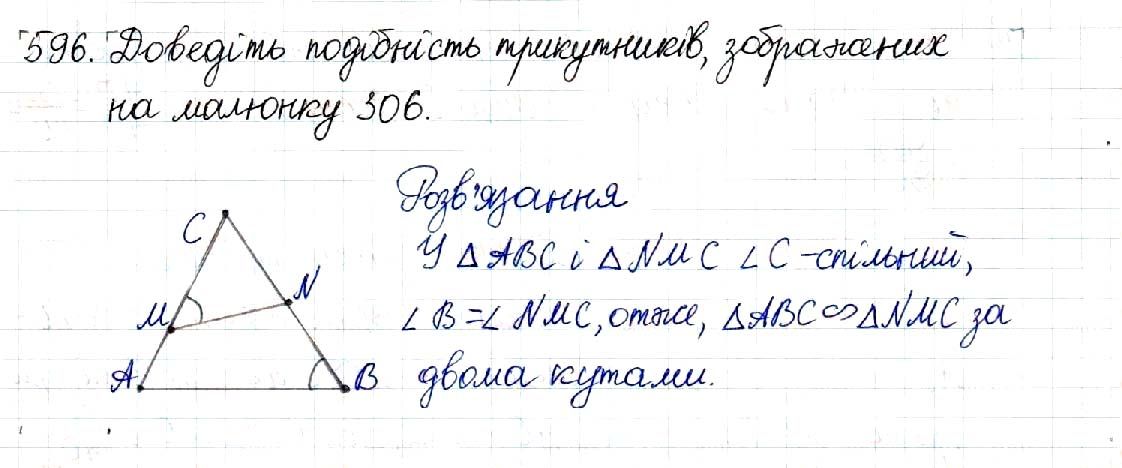 596. Доведіть подібність трикутників, зображених
на малюнку 306.
Розв'язання
У △ABC і △NMC ∠C - спільний,
∠B = ∠NMC, отже, △ABC ∽ △NMC за
двома кутами.
C
N
M
A
B